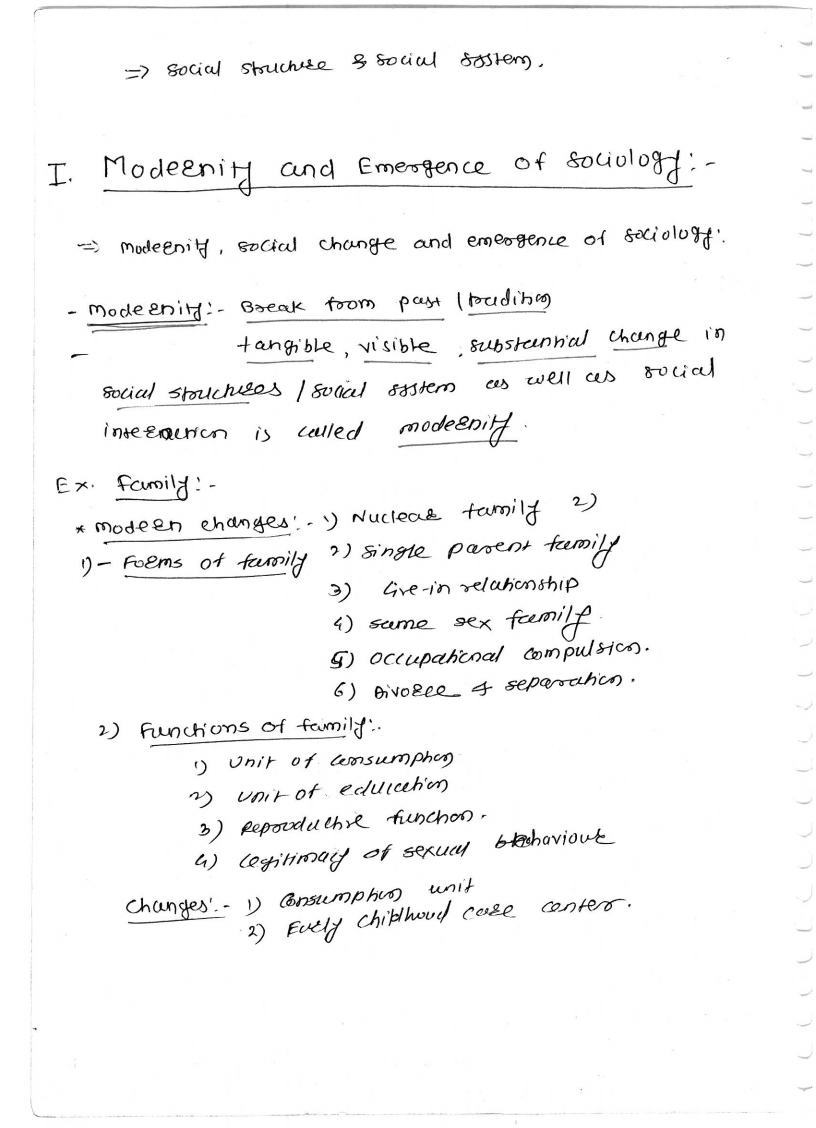 ⇒ social structure & social system.
I. Modernity and Emergence of sociology:-
⇒ modernity, social change and emergence of sociology:
- modernity:- Break from past / tradition
- tangible, visible, substantial change in
social structures / social system as well as social
interaction is called modernity.
Ex. family:-
* modern changes:- 1) Nuclear family 2)
1) - Forms of family 2) single parent family
3) live-in relationship
4) same sex family.
5) occupational compulsion.
6) Divorce & separation.
2) Functions of family:-
1) Unit of consumption
2) unit of education
3) Reproductive function.
4) Legitimacy of sexual behaviour
Changes:- 1) Consumption unit
2) Early childhood care center.